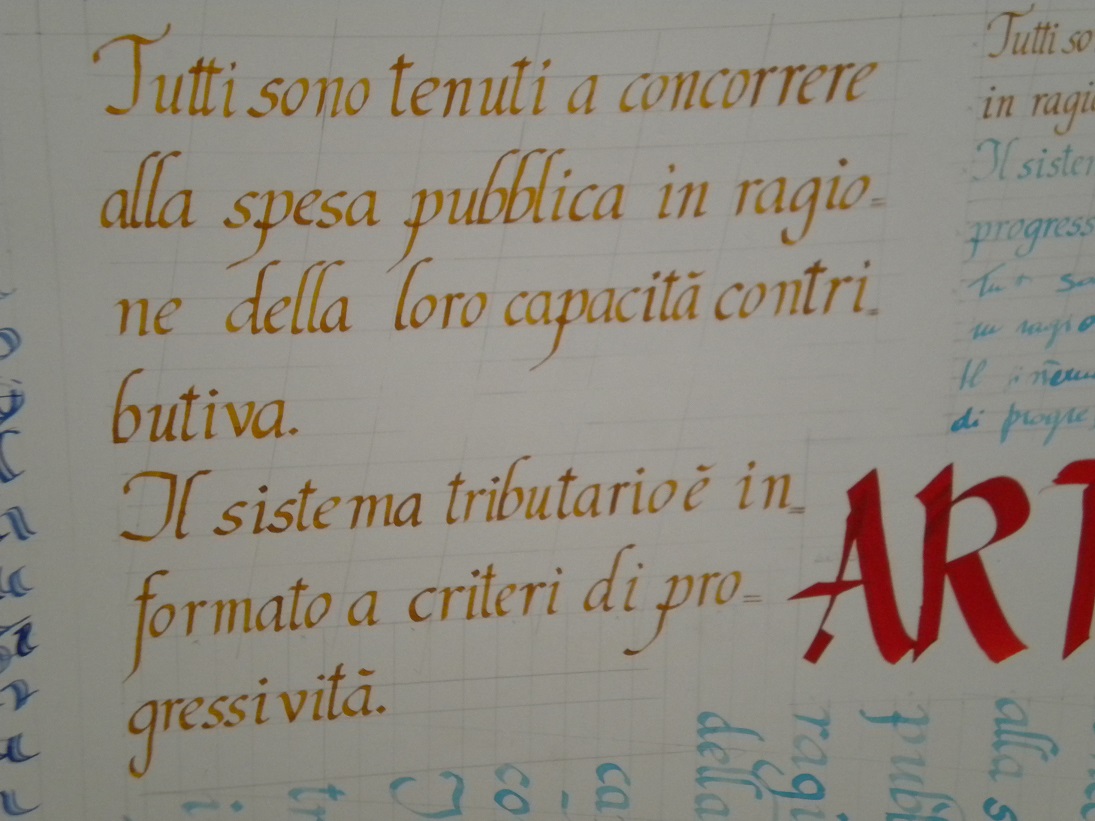 Tutti sono tenuti a concorrere
alla spesa pubblica in ragio=
ne della loro capacitā contri=
butiva.
Il sistema tributario ē in=
formato a criteri di pro=
gressivitā.
Tutti so
in ragio
Il sistem
progress
di progre
ART
della
ragi
pubbl
alla s
ca
co
tr
i